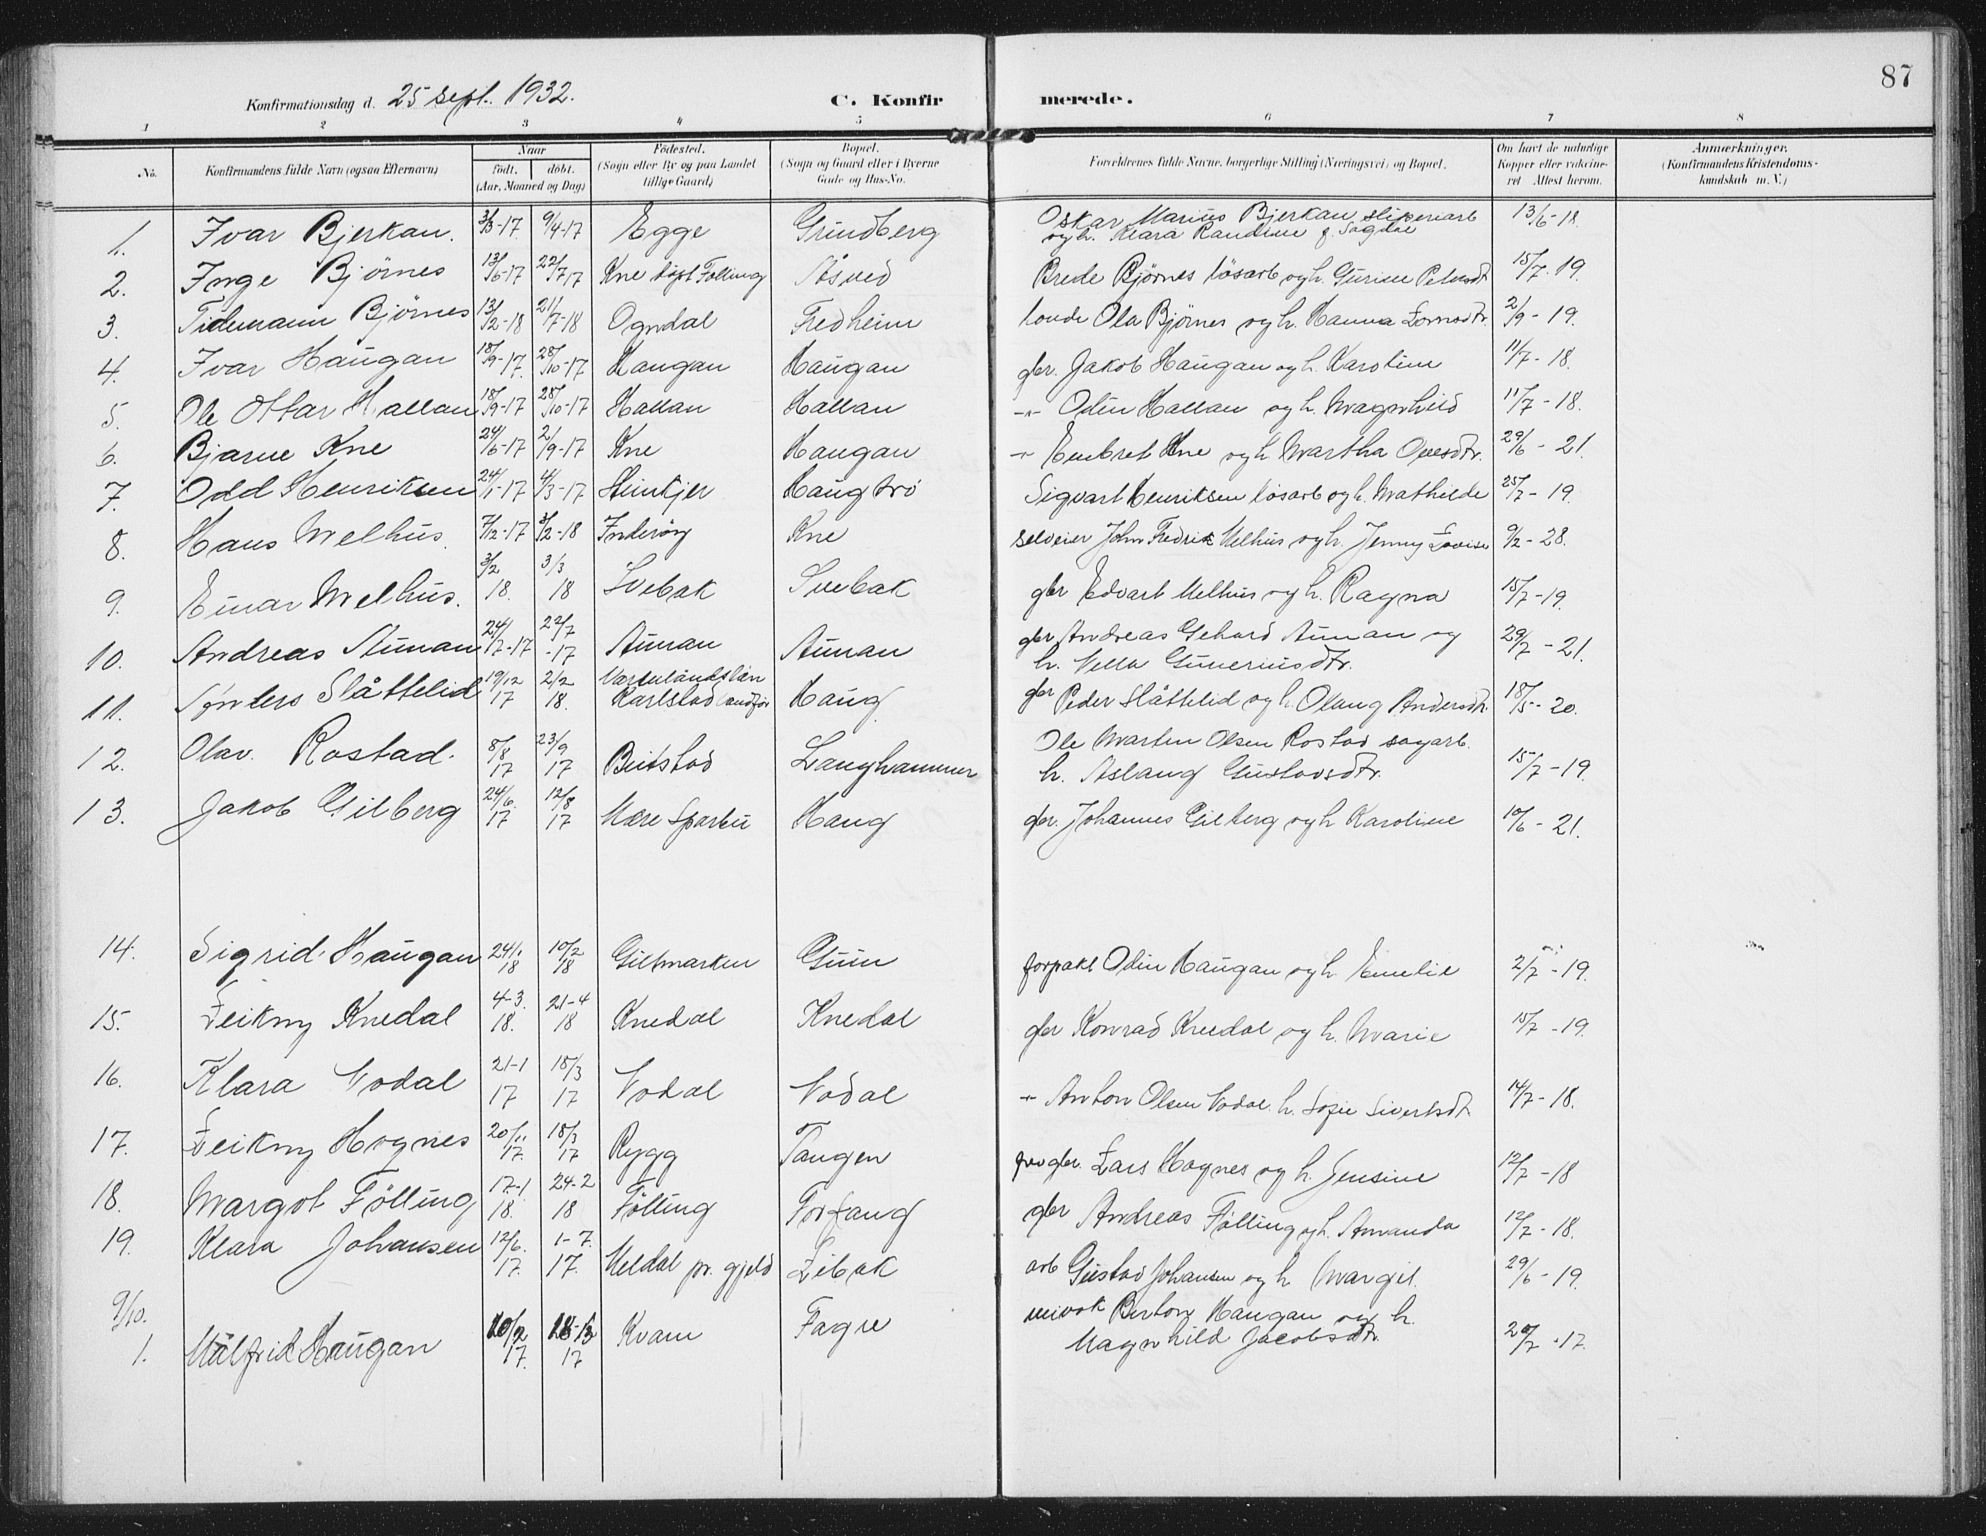 87
Konfirmationsdag d. 25 sept. 1932. C. Konfirmerede.
1 2 3 4 5 6 7 8
No. Konfirmandens fulde Navn (ogsaa Efternavn) Naar født. døbt. (Aar, Maaned og Dag) Fødested. (Sogn eller By og paa Landet tillige Gaard) Bopæl. (Sogn og Gaard eller i Byerne Gade og Hus-No. Forældrenes fulde Navne, borgerlige Stilling (Næringsvei) og Bopæl. Om havt de naturlige Kopper eller vaccineret. Attest herom. Anmerkninger. (Konfirmandens Kristendomskundskab m. V.)
1. Ivar Bjerkan. 3/3-17 9/4-17 Egge Grindberg Oskar Marius Bjerkan sliperiarb 13/6-18.
og h. Klara Randine f. Sagdal
2. Inge Bjørnes 13/6-17 22/7 17 Kne døpt Følling Åsved Brede Bjørnes løsarb og h. Gurine Petersdt. 15/7-19.
3. Tidemann Bjørnes 13/2-18 21/7-18 Ogndal Fredheim Ola Bjørnes og h. Hanna 2/9-19.
4. Ivar Haugan 18/9-17. 28/10-17 Haugan Haugan gbr. Jakob Haugan og h. Karoline 11/7-18.
5. Ole Ottar Hallan 18/9-17 28/10-17 Hallan Hallan -"- Odin Hallan og h. Magnhild 11/7-18.
6. Bjarne Kne 24/6-17 2/9-17 Kne Haugan -"- Embret Kne og h Martha 29/6-21.
7. Odd Henriksen 24/1-17 4/3-17 Steinkjer Haugtrø Sigvart Henriksen løsarb og h. Mathilde 25/7-19.
8. Hans Melhus. 7/12-17 3/2-18 Inderøy Kne selveier John Fredrik Melhus og h. Jenny Lovise 9/2-28.
9. Einar Melhus. 3/2 18. 3/3 18 Svebak Svebak gbr Edvart Melhus og h. Ragna 15/7-19.
10. Andreas Aunan 24/7-17 22/7-17 Aunan Aunan gbr Andreas Gehard Aunan og 29/7-21.
h. Guneriusdtr.
11. Slåttelid 19/12 17 2/2 18. Karlstad Haug gbr Peder Slåttelid og h. Olaug Andersdtr. 18/5-20.
12. Olav Rostad. 8/8 17 23/9 17 Beitstad Langhammer Ole Martin Olsen Rostad sagarb.
h. Aslaug Gustavsdtr. 15/7-19.
13. Jakob Gilberg 24/6. 17 12/8 17 Mære Sparbu Haug gbr. Johannes Gilberg og h Karoline 10/6-21.
14. Sigrid Haugan 24/1. 18 10/2 18 Giltmarken Guin forpakt Odin Haugan og h. Emelie 2/7-19.
15. Leikny Knedal 4-3. 18. 21-4 18 Knedal Knedal gbr Konrad Knedal og h. Marie 15/7-19.
16. Klara Vodal 21-1 17 18/3 17 Vodal Vodal -"- Anton Olsen Vodal. h. Sofie Sivertsdt. 14/7-18.
17. Leikny Hognes 20/11 17. 18/3 17 Rygg Tangen gbr. Lars Hognes og h. Jensine 12/7-18
18. Margot Følling 17-1. 18. 24-2 18 Følling Forfang gbr Andreas Følling og h. Amanda 12/7-18.
19. Klara Johansen 12/6. 17. 1-7. 17. Meldal pr. gjeld Libak arb Gustav Johansen og h Margit. 29/6-19.
9/10.
1. Målfrid Haugan 17. 17 Kvam Fagre Haugan og h.
Magnhild Jacobsdtr. 20/7-17.